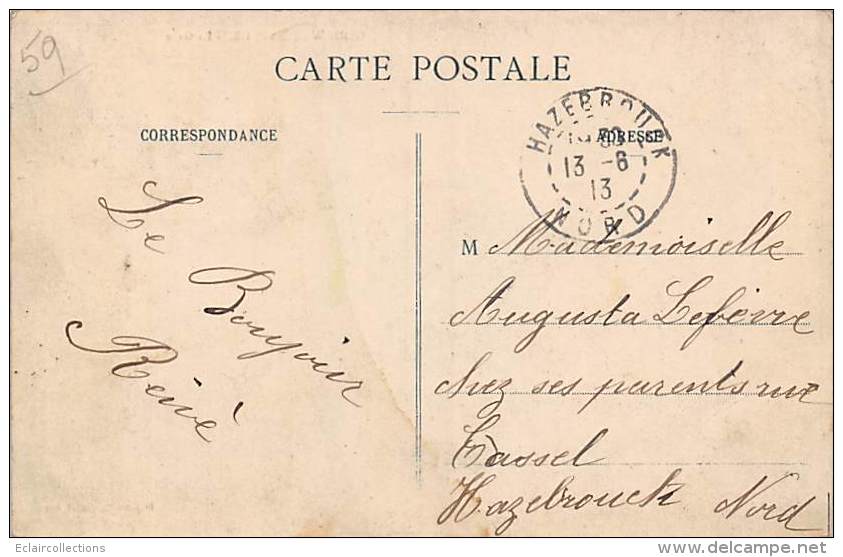 59
CARTE POSTALE
CORRESPONDANCE
ADRESSE
HAZEBROUCK
13 -6
13
NORD
Le Bonjour
Réné
M Mademoiselle
Augusta Lefèvre
chez ses parents rue
Cassel
Hazebrouck Nord
Eclaircollections
delcampe.net